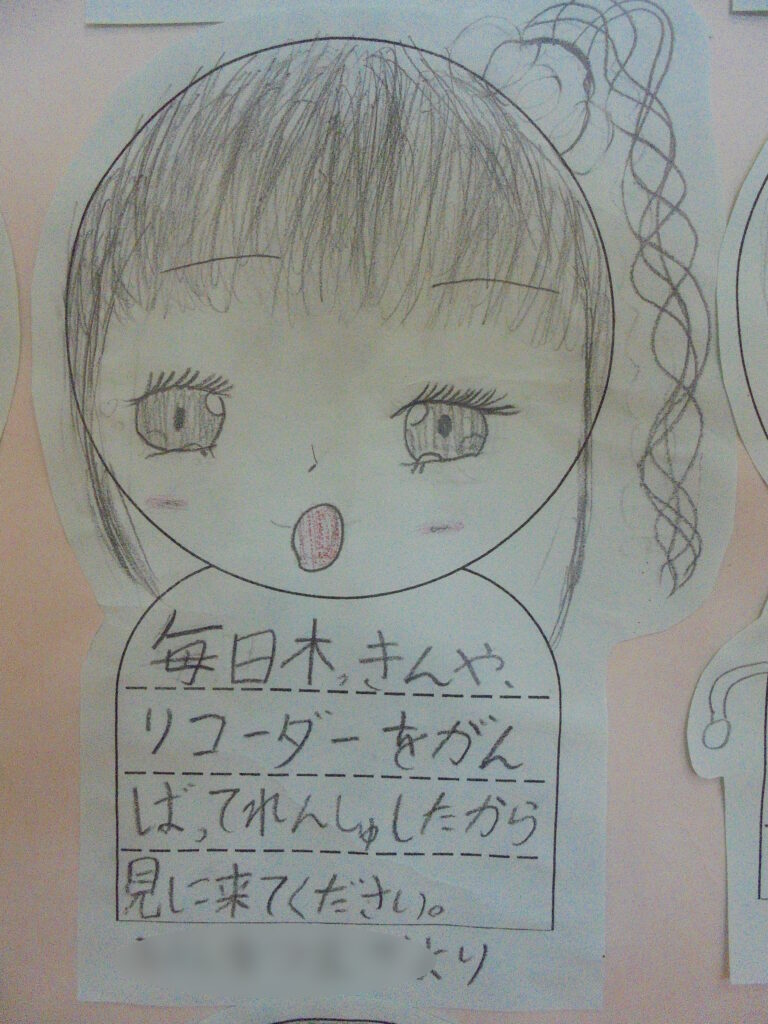 毎日木っきんや、
リコーダーをがん
ばってれんしゅしたから
見に来てください。